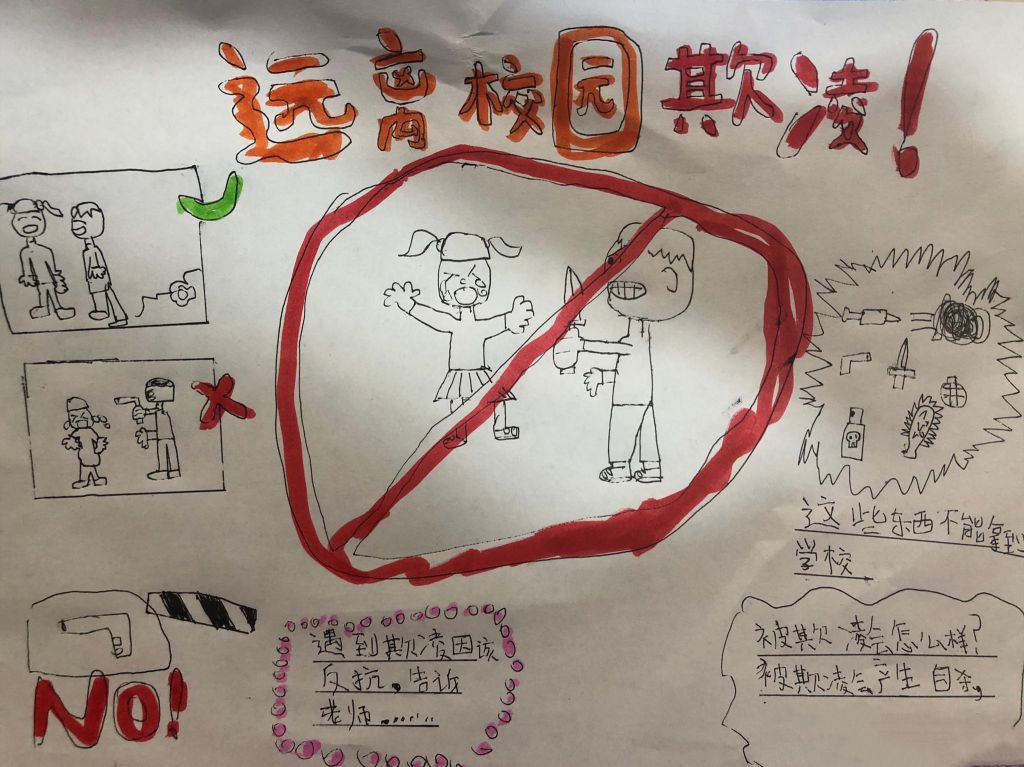 远离校园欺凌！
这些东西不能拿到
学校
NO!
遇到欺凌因该
反抗。告诉
老师……
被欺凌会怎么样?
被欺凌会产生自杀,